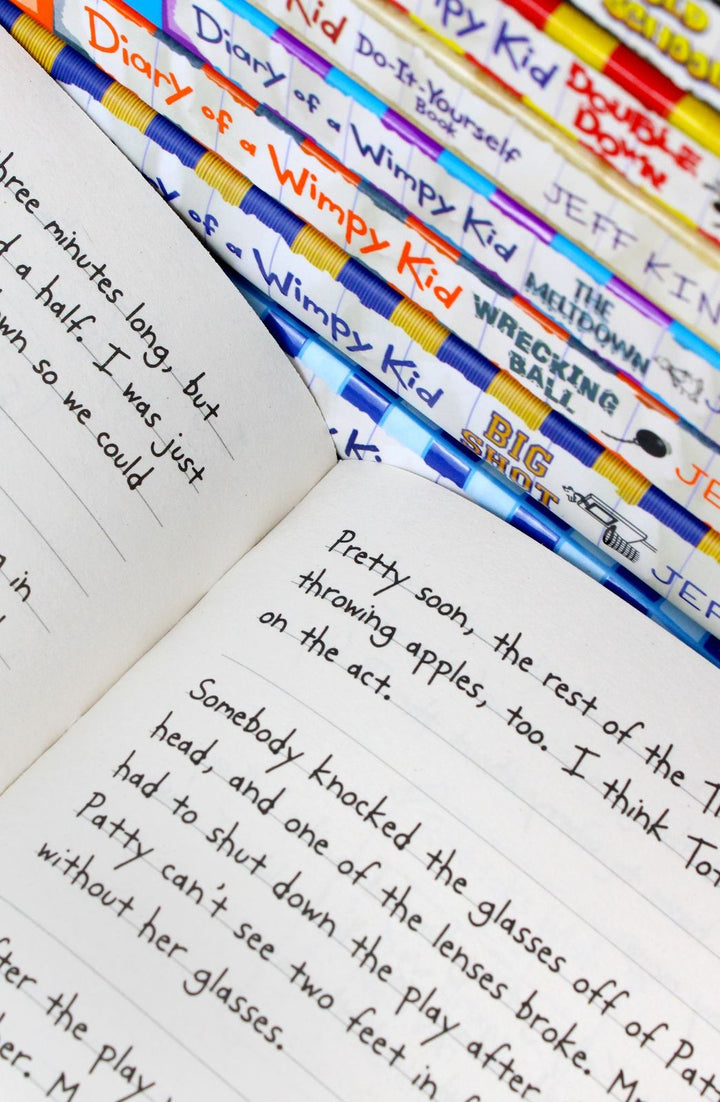 OLD
SCHOOL
Wimpy Kid
DOUBLE
DOWN
Kid
Do-It-Yourself
Book
JEFF KIN
Diary of a Wimpy Kid
THE
MELTDOWN
Diary of a Wimpy Kid
WRECKING
BALL
JE
y of a Wimpy Kid
BIG
SHOT
JEF
.K.
three minutes long, but
d a half. I was just
own so we could
g in
Pretty soon, the rest of the T
throwing apples, too. I think Tot
on the act.
Somebody knocked the glasses off of Patt
head, and one of the lenses broke. M
had to shut down the play after
Patty can't see two feet in f
without her glasses.
fter the play
her. M